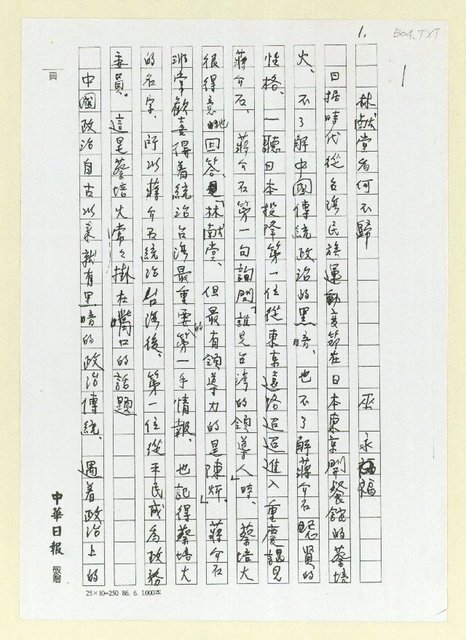 1. BO4.TXT
1
林献堂為何不歸 巫永福
日据時代從台湾民族運動家第在日本東京開餐館的蔡培
火、不了解中國傳統政治的黑暗、也不了解蔣介石忌賢的
性格、一聽日本投降第一位從東京遠路迢迢進入重慶謁見
蔣介石、蔣介石第一句詢問「誰是台湾的領導人」時、蔡培火
很得意地回答、是「林献堂、但最有領導力的是陳炘」。蔣介石
非常歡喜得着統治台湾最重要的第一手情報、也記得蔡培火
的名字、所以蔣介石統治台湾後、第一位從平民成為政務
委員。這是蔡培火常々掛在嘴口的話題
中國政治自古以來就有黑暗的政治傳統、遇着政治上的
頁
中華日報 敬贈
25×10=250 86.6.1000本